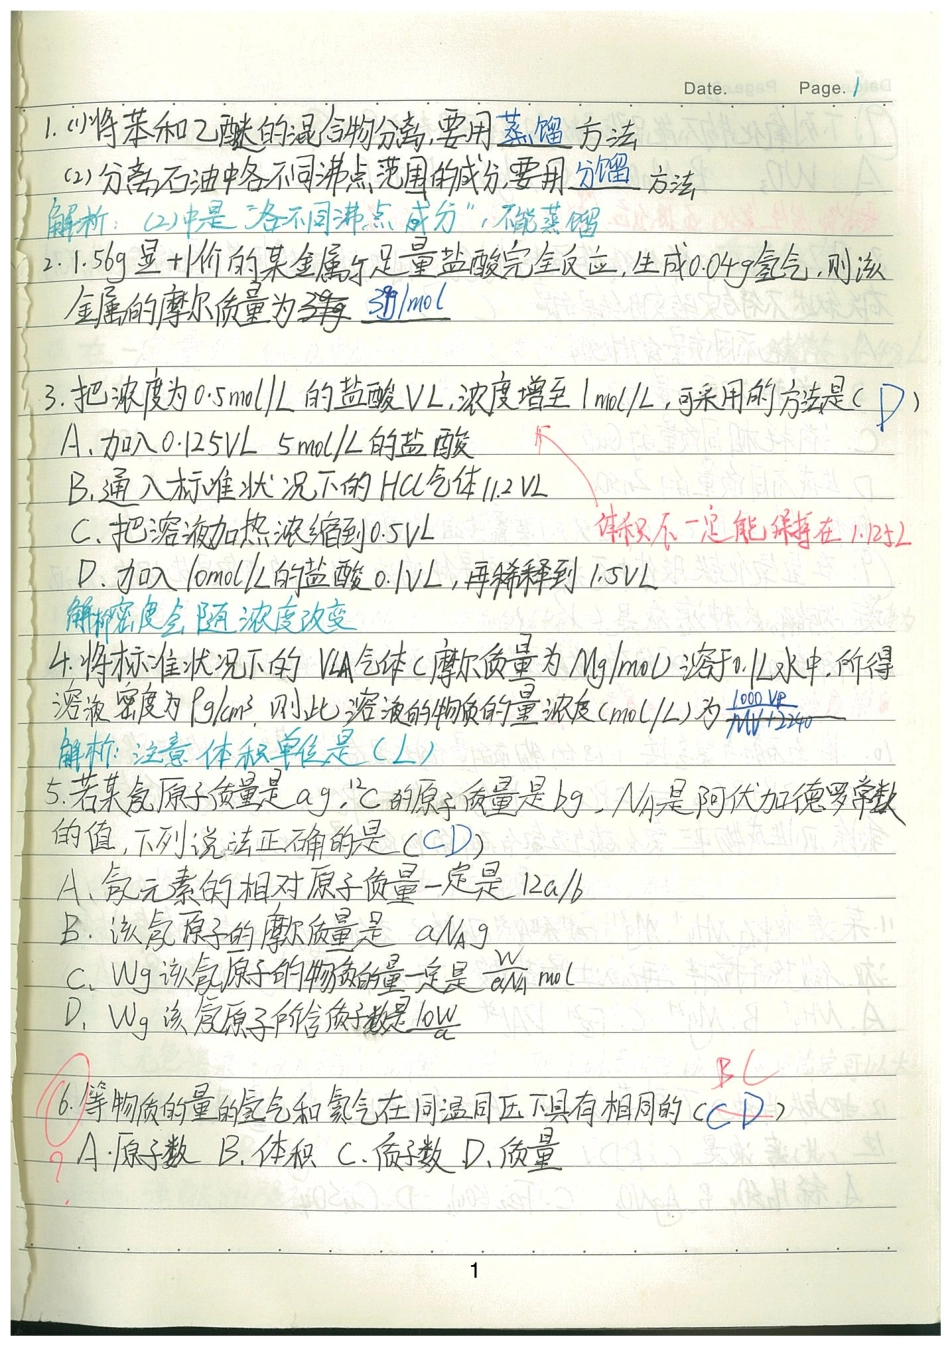 Date. Page. 1
1. (1)将苯和乙醚的混合物分离,要用 蒸馏 方法
(2)分离石油中各不同沸点范围的成分要用 分馏 方法
解析: (2)中是“各不同沸点成分”,不能蒸馏
2. 1.56g 显+1价的某金属与足量盐酸完全反应,生成0.04g氢气,则该
金属的摩尔质量为 39g/mol
3. 把浓度为0.5mol/L的盐酸VL,浓度增至1mol/L,可采用的方法是( D )
A. 加入0.125VL 5mol/L的盐酸
B. 通入标准状况下的HCl气体11.2VL
C. 把溶液加热浓缩到0.5VL
体积不一定能保持在1.125L
D. 加入10mol/L的盐酸0.1VL,再稀释到1.5VL
解析密度会随浓度改变
4. 将标准状况下的VLA气体(摩尔质量为Mg/mol)溶于0.1L水中,所得
溶液密度为ρg/cm³,则此溶液的物质的量浓度(mol/L)为 1000Vρ/MV+2240
解析:注意体积单位是(L)
5. 若某氡原子质量是ag,¹²C的原子质量是bg,NA是阿伏加德罗常数
的值,下列说法正确的是( CD )
A. 氡元素的相对原子质量一定是12a/b
B. 该氡原子的摩尔质量是 aNAg
C. Wg该氡原子的物质的量一定是 W/aNA mol
D. Wg该氡原子所含质子数是 10W/a
BC
6. 等物质的量的氢气和氦气在同温同压下具有相同的( CD )
? A. 原子数 B. 体积 C. 质子数 D. 质量
1